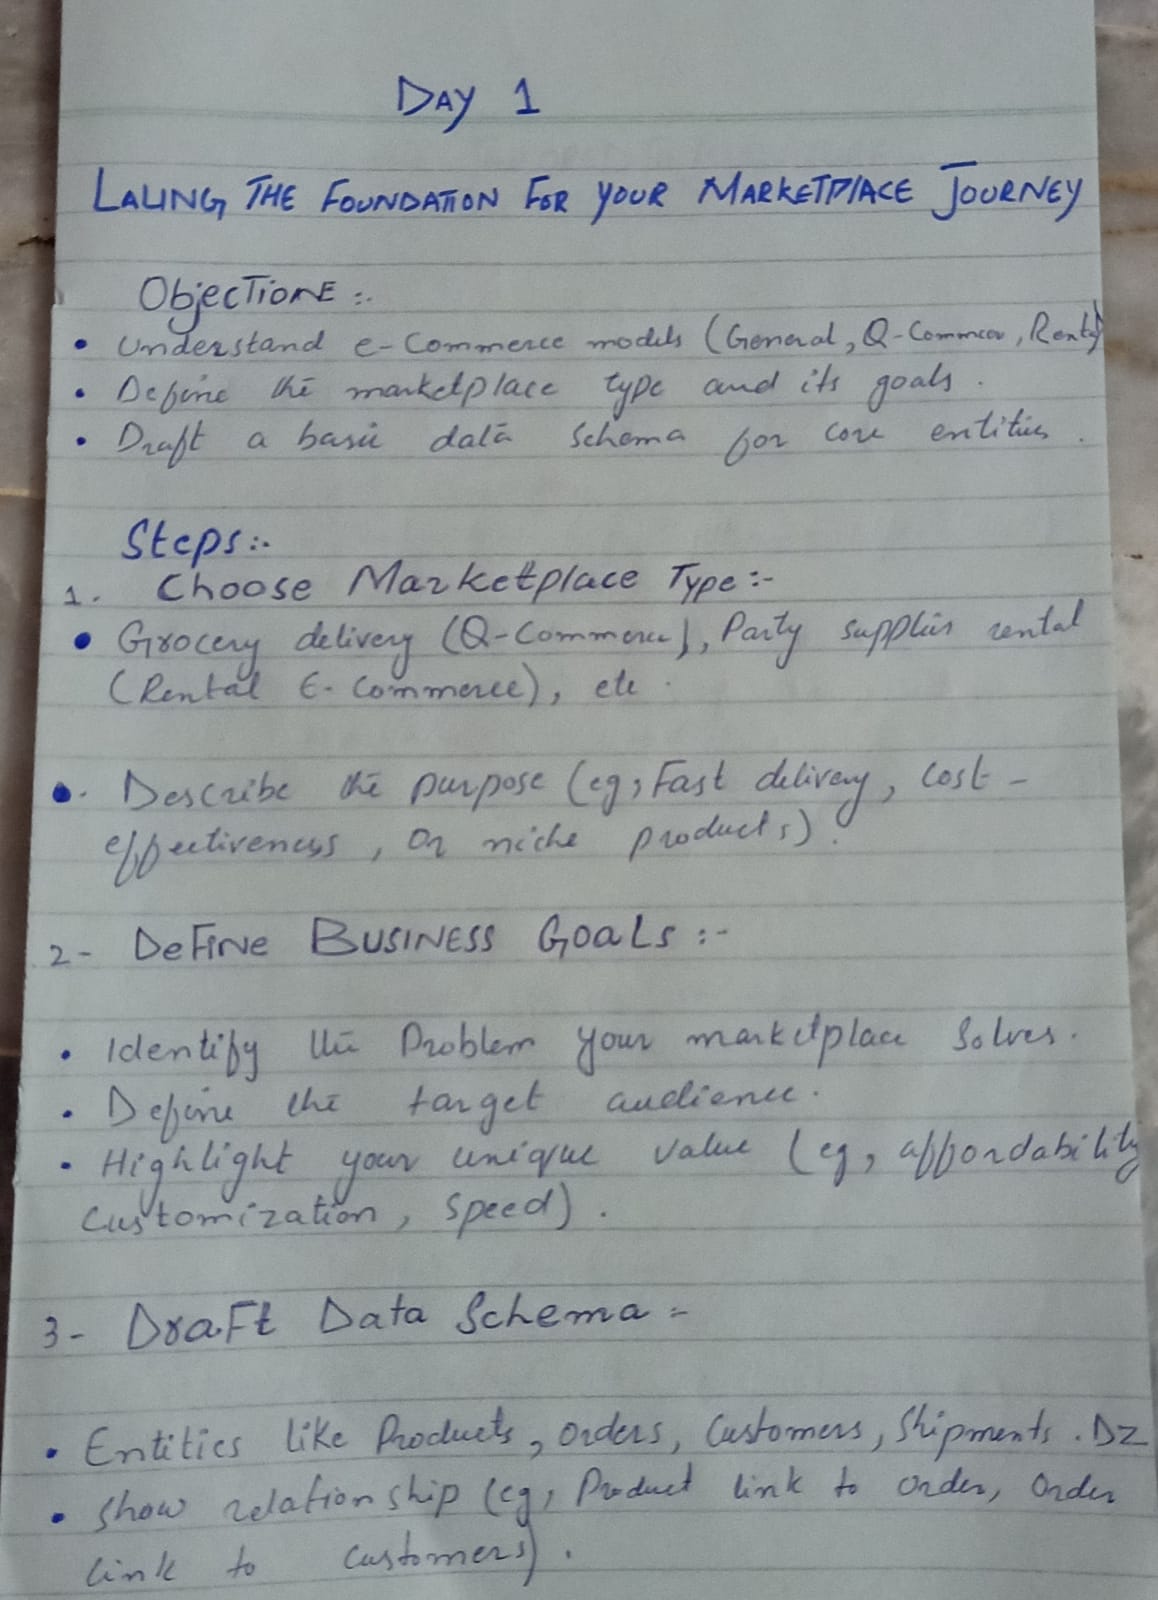 DAY 1
LAUNG THE FOUNDATION FOR YOUR MARKETPLACE JOURNEY
ObjecTionE :-
• Understand e-Commerce models (General, Q-Commerce, Rental)
• Define the marketplace type and its goals.
• Draft a basic data Schema for core entities.
Steps:-
1. Choose Marketplace Type :-
• Grocery delivery (Q-Commerce), Party supplies rental
(Rental E-Commerce), etc.
• Describe the purpose (eg, Fast delivery, Cost-
effectiveness, or niche products).
2- DeFine BUSINESS GoaLs :-
• Identify the Problem your marketplace Solves.
• Define the target audience.
• Highlight your unique value (eg, affordability
Customization, Speed).
3- DraFt Data Schema :-
• Entities like Products, Orders, Customers, Shipments. DZ
• Show relationship (eg, Product link to order, Order
link to customers).